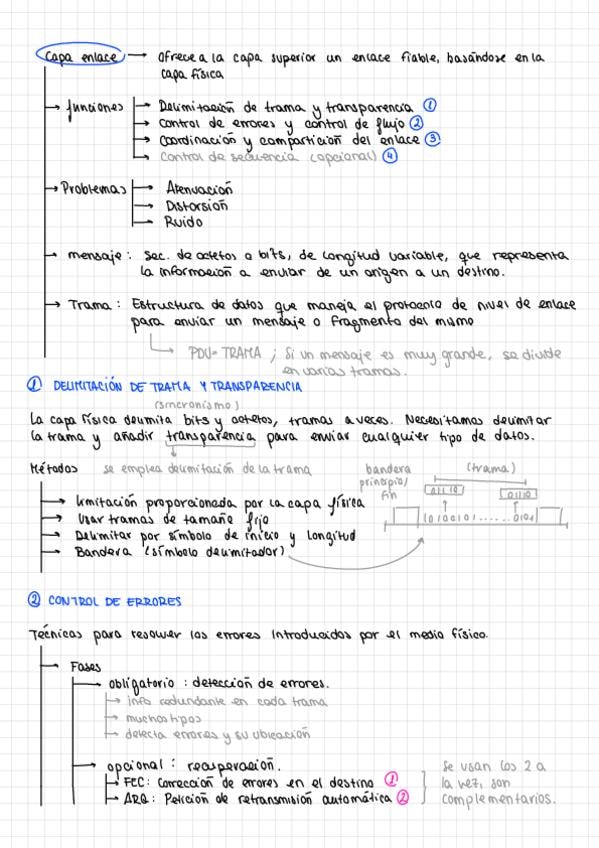 Capa enlace → ofrece a la capa superior un enlace fiable, basándose en la
capa física
→ funciones → Delimitación de trama y transparencia ①
→ control de errores y control de flujo ②
→ Coordinación y compartición del enlace ③
→ Control de secuencia (opcional) ④
→ Problemas → Atenuación
→ Distorsión
→ Ruido
→ mensaje : Sec. de octetos o bits, de longitud variable, que representa
la información a enviar de un origen a un destino.
→ Trama : Estructura de datos que maneja el protocolo de nivel de enlace
para enviar un mensaje o fragmento del mismo
PDU= TRAMA ; Si un mensaje es muy grande, se divide
en varias tramas.
① DELIMITACIÓN DE TRAMA Y TRANSPARENCIA
(sincronismo)
La capa física delimita bits y octetos, tramas a veces. Necesitamos delimitar
la trama y añadir transparencia para enviar cualquier tipo de datos.
Métodos se emplea delimitación de la trama
→ limitación proporcionada por la capa física
→ Usar tramas de tamaño fijo
→ Delimitar por símbolo de inicio y longitud
→ Bandera (símbolo delimitador)
bandera
principio/
fin
(trama)
01110 01110
10100101......0101
② CONTROL DE ERRORES
Técnicas para resolver los errores introducidos por el medio físico.
→ Fases
→ obligatorio : detección de errores.
→ info redundante en cada trama
→ muchos tipos
→ detecta errores y su ubicación
→ opcional : recuperación.
→ FEC: Corrección de errores en el destino ①
→ ARQ: Petición de retransmisión automática ②
Se usan los 2 a
la vez, son
complementarios.